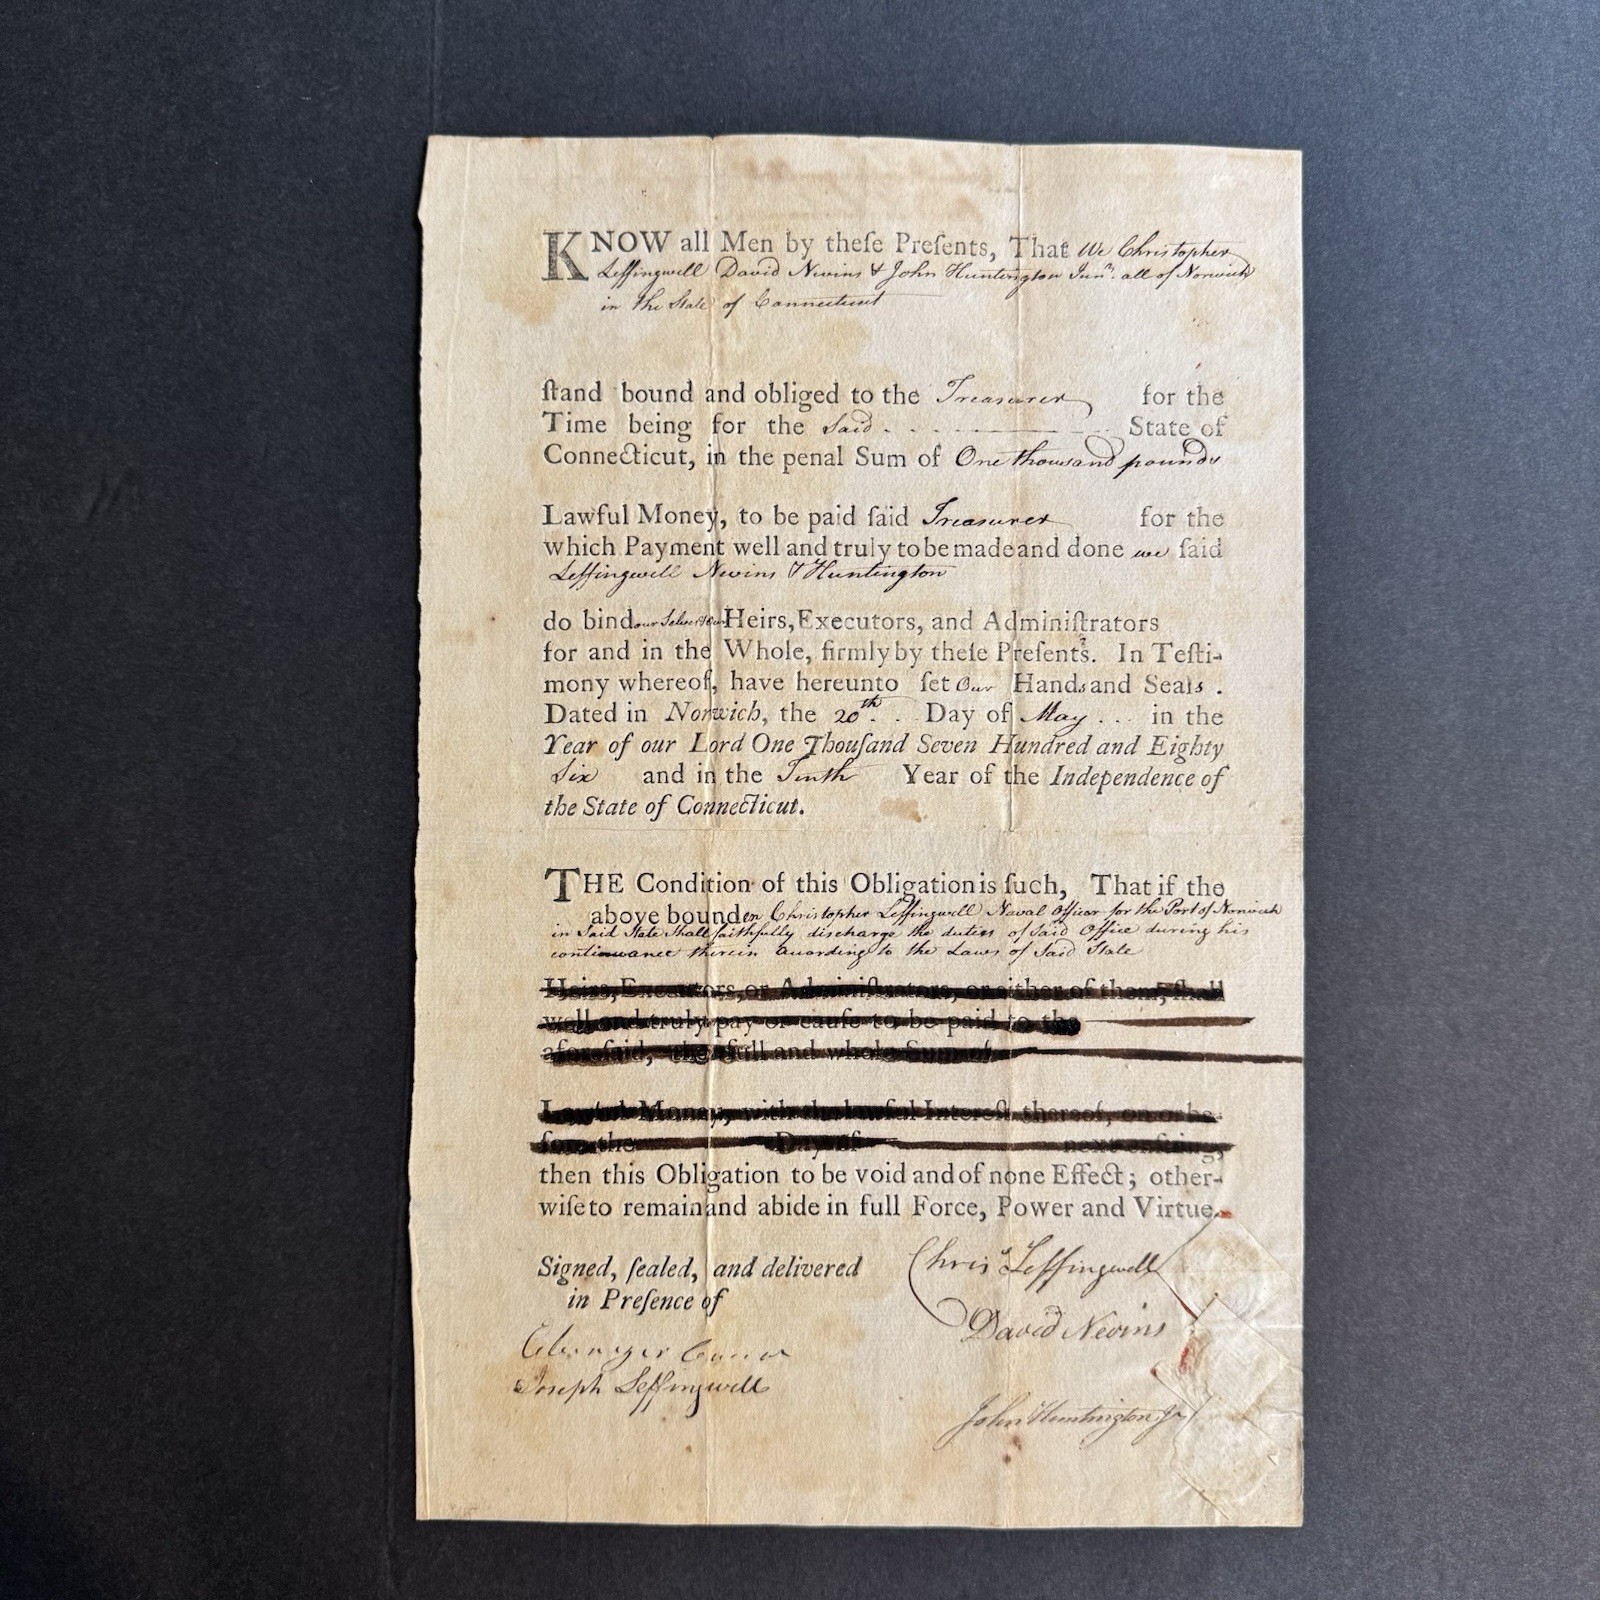 KNOW all Men by theſe Preſents, That We Christopher
Leffingwell David Nevins & John Huntington Junr. all of Norwich
in the State of Connecticut
ſtand bound and obliged to the Treasurer for the
Time being for the Said . . . . State of
Connecticut, in the penal Sum of One thousand pounds
Lawful Money, to be paid ſaid Treasurer for the
which Payment well and truly to be made and done we ſaid
Leffingwell Nevins & Huntington
do bind our Selves & our Heirs, Executors, and Adminiſtrators
for and in the Whole, firmly by theſe Preſents. In Teſti-
mony whereof, have hereunto ſet Our Hands and Seals .
Dated in Norwich, the 20th . . Day of May . . . in the
Year of our Lord One Thouſand Seven Hundred and Eighty
Six and in the Tenth Year of the Independence of
the State of Connecticut.
THE Condition of this Obligation is ſuch, That if the
above bounden Christopher Leffingwell Naval Officer for the Port of Norwich
in Said State Shall faithfully discharge the duties of Said Office during his
continuance therein according to the Laws of Said State
Heirs, Executors, or Adminiſtrators, or either of them, ſhall
well and truly pay or cauſe to be paid to the
aforeſaid, the full and whole Sum of
Lawful Money, with the lawful Intereſt thereof, on or be-
fore the Day of next enſuing,
then this Obligation to be void and of none Effect; other-
wiſe to remain and abide in full Force, Power and Virtue.
Signed, ſealed, and delivered
in Preſence of
Chris Leffingwell
David Nevins
Ebenezer
Joseph Leffingwell
John Huntington Jr